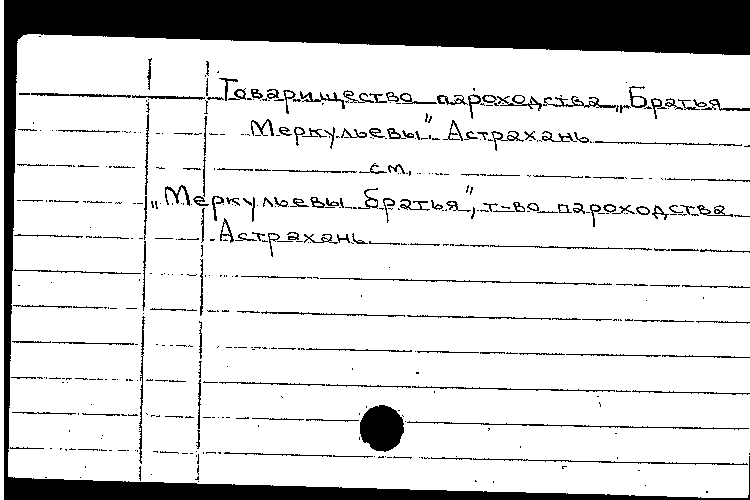 Товарищество пароходства „Братья
Меркульевы". Астрахань
см.
„Меркульевы братья", т-во пароходства.
Астрахань.